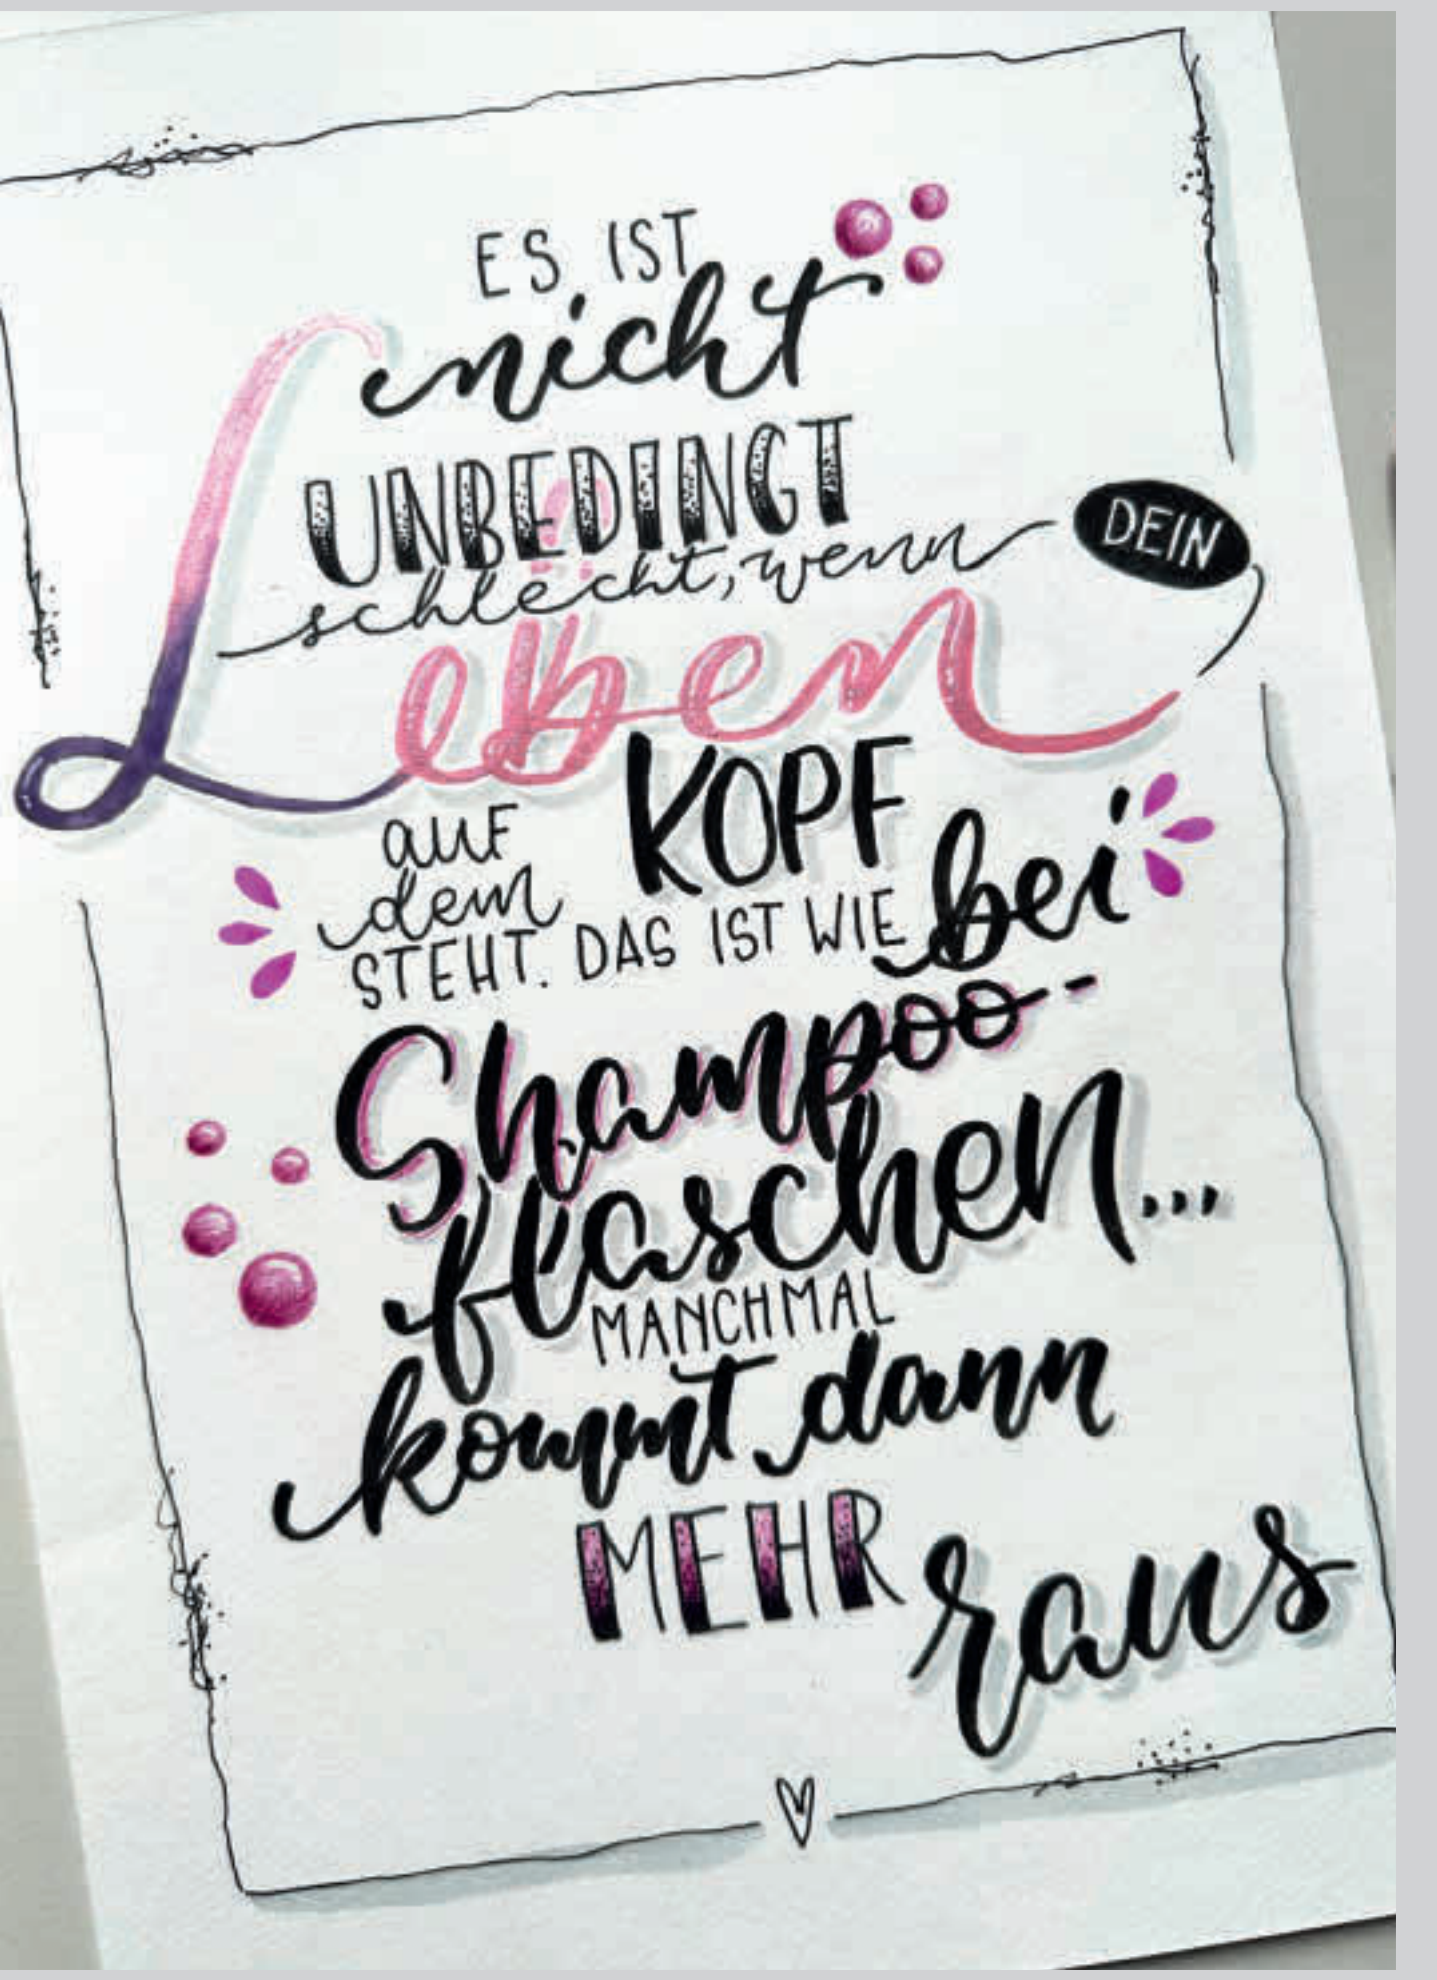 ES IST
nicht
UNBEDINGT
schlecht, wenn DEIN
Leben
auf
dem KOPF
STEHT. DAS IST WIE bei
Shampoo-
flaschen...
MANCHMAL
kommt dann
MEHR raus